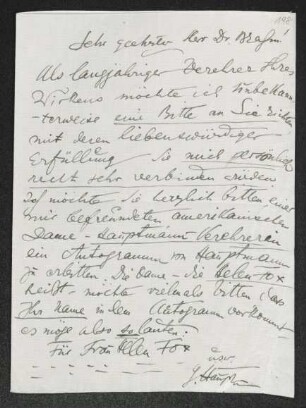 198
Sehr geehrter Herr Dr. Brahm!
Als langjähriger Verehrer Ihres
Wirkens möchte ich unbekann-
terweise eine Bitte an Sie richten
mit deren liebenswürdiger
Erfüllung Sie mich persönlich
recht sehr verbinden würden
Ich möchte Sie herzlich bitten einer
mir befreundeten amerikanischen
Dame - Hauptmann Verehrerin
ein Autogramm von Hauptmann
zu erbitten. Die Dame - die Ellen Fox
heißt, möchte vielmals bitten, dass
Ihr Name in dem Autogramm vorkommt
es möge also so lauten:
Für Frau Ellen Fox
usw.
G. Haupt